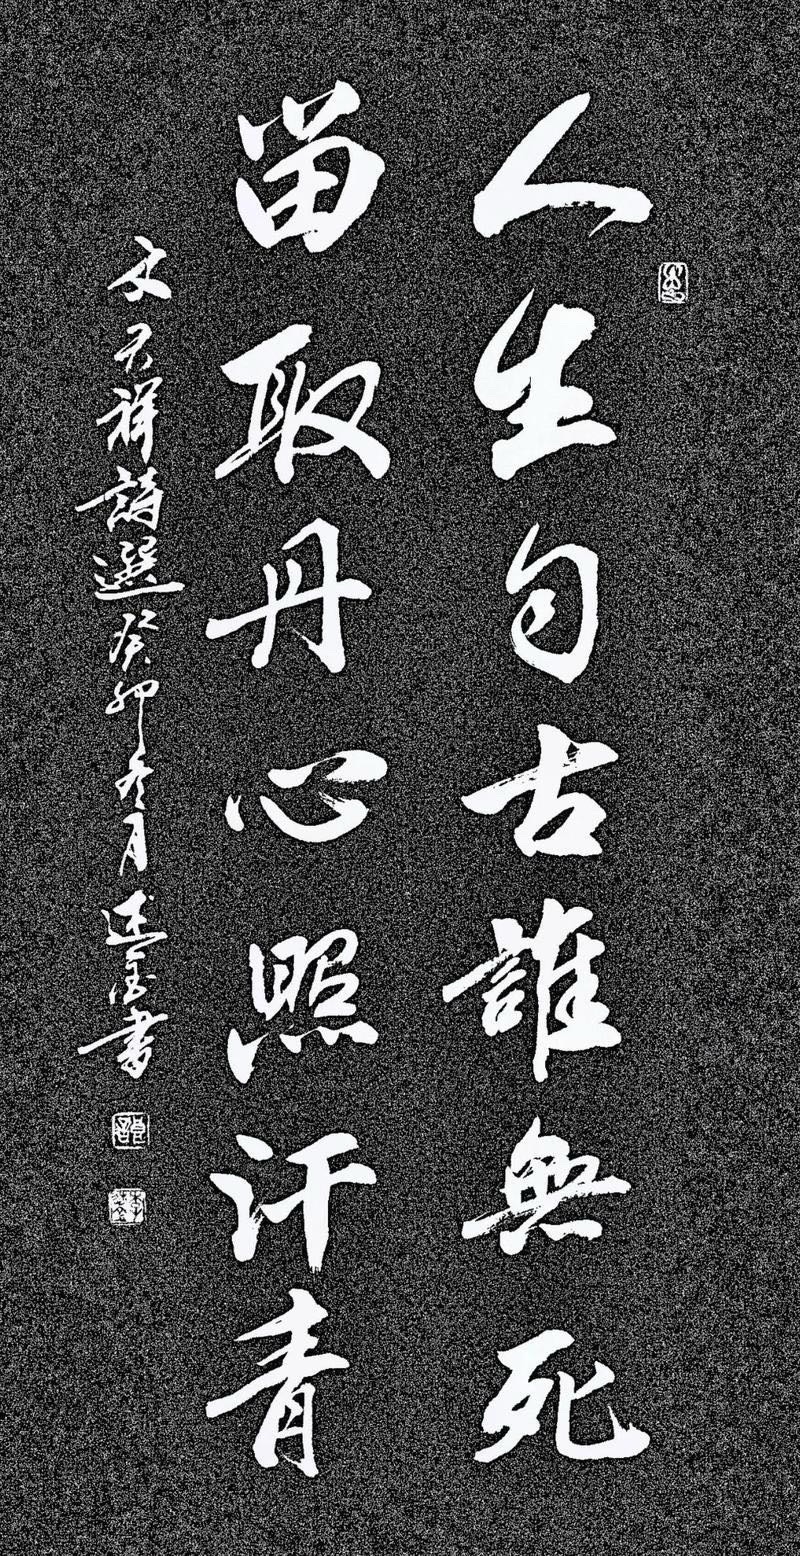 人生自古誰無死
留取丹心照汗青
文天祥詩選癸卯冬月述書